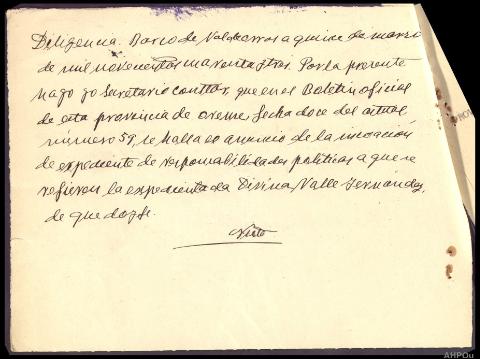 Diligencia. Barco de Valdeorras a quince de marzo
de mil novecientos cuarenta y tres. Por la presente
hago yo Secretario constar, que en el Boletin oficial
de esta provincia de orense, fecha doce del actual,
número 59, se halla el anuncio de la incoacion
de expediente de responsabilidades politicas a que se
refieren la expedientada Divina Valle Fernández,
de que doy fe.
AHPOu